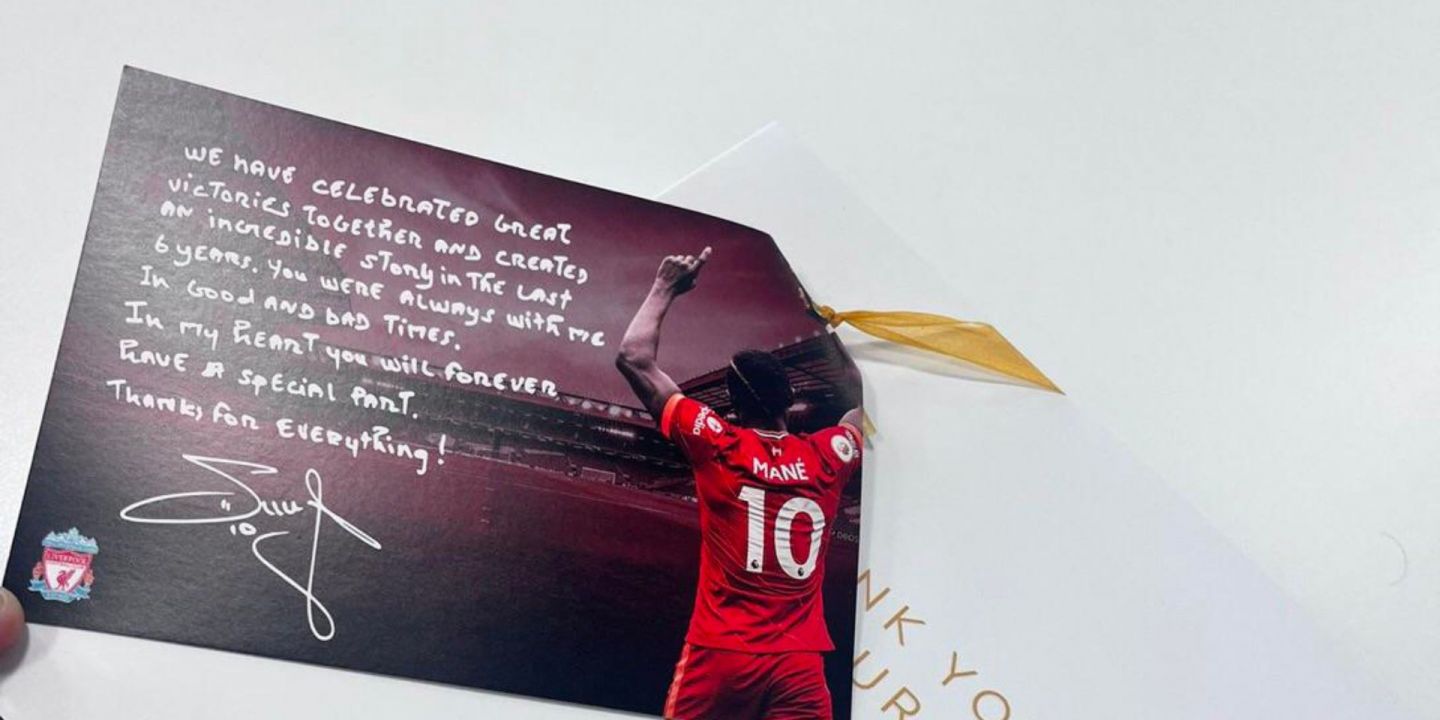 WE HAVE CELEBRATED GREAT
VICTORIES TOGETHER AND CREATED
AN INCREDIBLE STORY IN THE LAST
6 YEARS. YOU WERE ALWAYS WITH ME
IN GOOD AND BAD TIMES.
IN MY HEART YOU WILL FOREVER
HAVE A SPECIAL PART.
THANKS FOR EVERYTHING!
10
LIVERPOOL
MANÉ
10
NK YO
UR